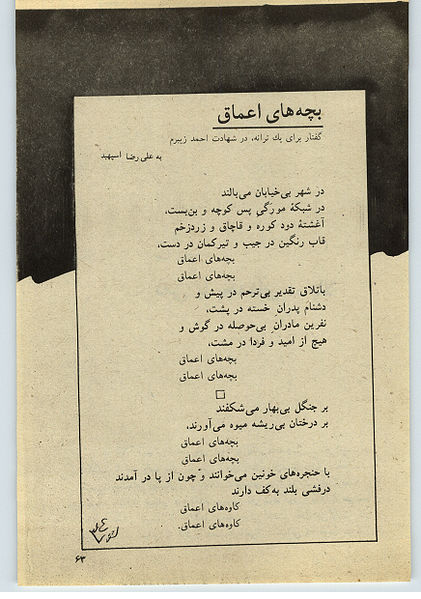 بچه‌های اعماق
گفتار برای یك ترانه، در شهادت احمد زیبرم
به علی رضا اسپهبد
در شهر بی‌خیابان می‌بالند
در شبکهٔ مورگی پس کوچه و بن‌بست،
آغشتهٔ دود کوره و قاچاق و زردزخم
قاب رنگین در جیب و تیرکمان در دست،
بچه‌های اعماق
بچه‌های اعماق
باتلاق تقدیر بی‌ترحم در پیش و
دشنام پدران خسته در پشت،
نفرین مادران بی‌حوصله در گوش و
هیچ از امید و فردا در مشت،
بچه‌های اعماق
بچه‌های اعماق
بر جنگل بی‌بهار می‌شکفند
بر درختان بی‌ریشه میوه می‌آورند،
بچه‌های اعماق
بچه‌های اعماق
با حنجره‌های خونین می‌خوانند و چون از پا در آمدند
درفشی بلند به‌کف دارند
کاوه‌های اعماق
کاوه‌های اعماق.
۶۳